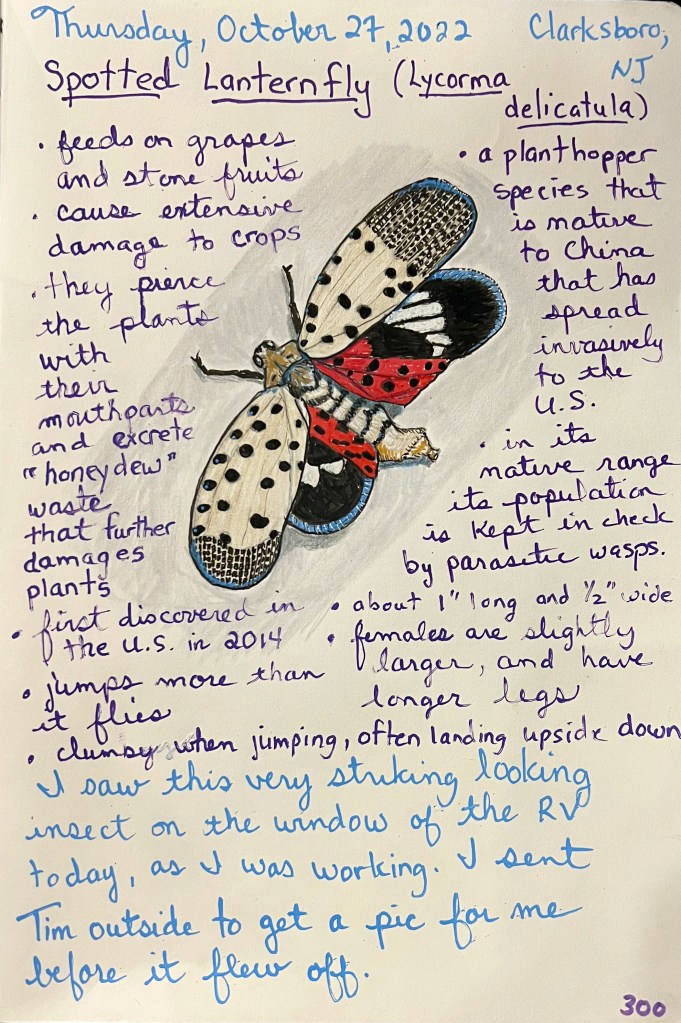 Thursday, October 27, 2022 Clarksboro, NJ
Spotted Lanternfly (Lycorma delicatula)
• feeds on grapes
and stone fruits
• cause extensive
damage to crops
• they pierce
the plants
with
their
mouthparts
and excrete
"honeydew"
waste
that further
damages
plants
• a planthopper
species that
is native
to China
that has
spread
invasively
to the
U.S.
• in its
native range
its population
is kept in check
by parasitic wasps.
• first discovered in
the U.S. in 2014
• jumps more than
it flies
• about 1" long and 1/2" wide
• females are slightly
larger, and have
longer legs
• clumsy when jumping, often landing upside down
I saw this very striking looking
insect on the window of the RV
today, as I was working. I sent
Tim outside to get a pic for me
before it flew off.
300